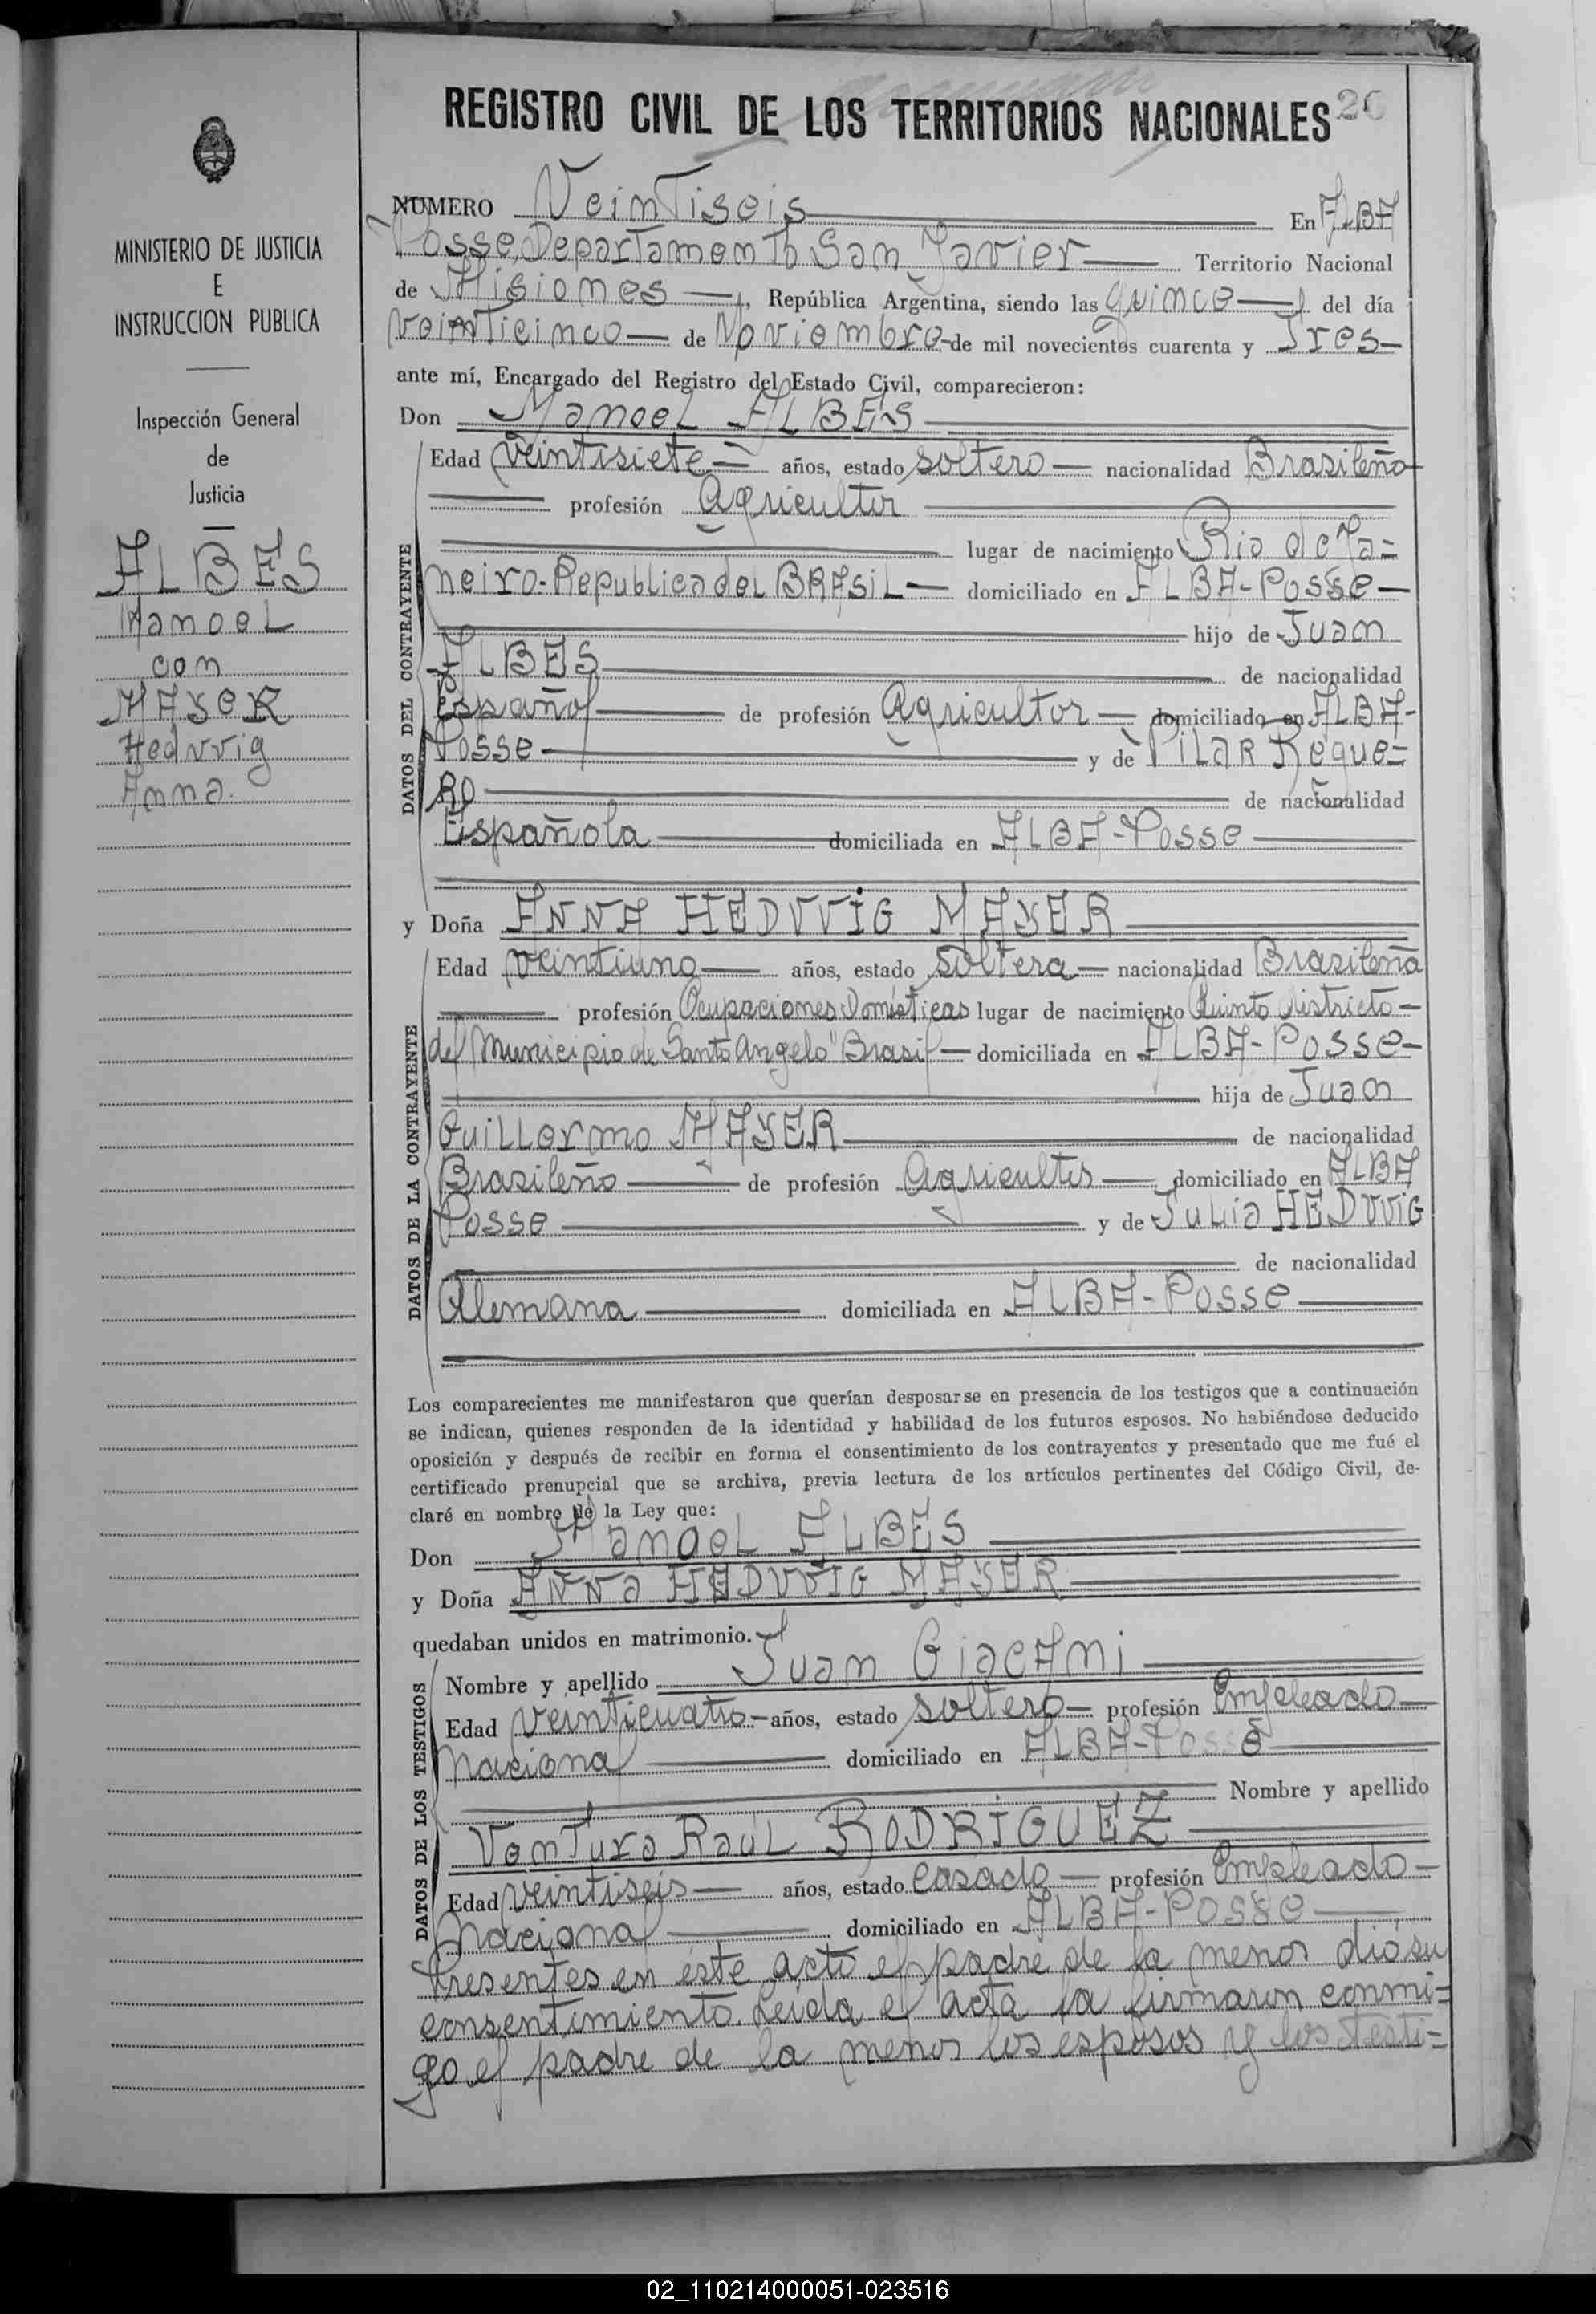 REGISTRO CIVIL DE LOS TERRITORIOS NACIONALES 26
MINISTERIO DE JUSTICIA
E
INSTRUCCION PUBLICA
Inspección General
de
Justicia
ALBES
Manoel
con
MAYER
Hedvvig
Anna.
NUMERO Veintiseis En ALBA
Posse, Departamento San Javier Territorio Nacional
de Misiones, República Argentina, siendo las quince del día
veinticinco de Noviembre de mil novecientos cuarenta y Tres
ante mí, Encargado del Registro del Estado Civil, comparecieron:
Don Manoel ALBES
DATOS DEL CONTRAYENTE
Edad veintisiete años, estado soltero nacionalidad Brasileño
profesión Agricultor
lugar de nacimiento Rio de Ja=
neiro-Republica del BRASiL domiciliado en ALBA-Posse
hijo de Juan
ALBES de nacionalidad
Español de profesión Agricultor domiciliado en ALBA-
Posse y de PiLAR Reque=
Ro de nacionalidad
Española domiciliada en ALBA-Posse
y Doña ANNA HEDVVIG MAYER
DATOS DE LA CONTRAYENTE
Edad veintiuno años, estado soltera nacionalidad Brasileña
profesión Ocupaciones Domésticas lugar de nacimiento Quinto districto
del Municipio de Santo Angelo "Brasil domiciliada en ALBA-Posse
hija de Juan
Guillermo MAYER de nacionalidad
Brasileño de profesión Agricultor domiciliado en ALBA
Posse y de Julia HEDVVIG
de nacionalidad
Alemana domiciliada en ALBA-Posse
Los comparecientes me manifestaron que querían desposarse en presencia de los testigos que a continuación
se indican, quienes responden de la identidad y habilidad de los futuros esposos. No habiéndose deducido
oposición y después de recibir en forma el consentimiento de los contrayentes y presentado que me fué el
certificado prenupcial que se archiva, previa lectura de los artículos pertinentes del Código Civil, de-
claré en nombre de la Ley que:
Don Manoel ALBES
y Doña ANNA HEDVVIG MAYER
quedaban unidos en matrimonio.
DATOS DE LOS TESTIGOS
Nombre y apellido Juan GiacAni
Edad veinticuatro años, estado soltero profesión Empleado
Nacional domiciliado en ALBA-Posse
Nombre y apellido
Ventura Raul RODRiGUEZ
Edad veintiseis años, estado casado profesión Empleado
Nacional domiciliado en ALBA-Posse
Presentes en éste acto el padre de la menor dió su
consentimiento. Leida el acta la firmaron conmi=
go el padre de la menor los esposos y los testi=
02_110214000051-023516